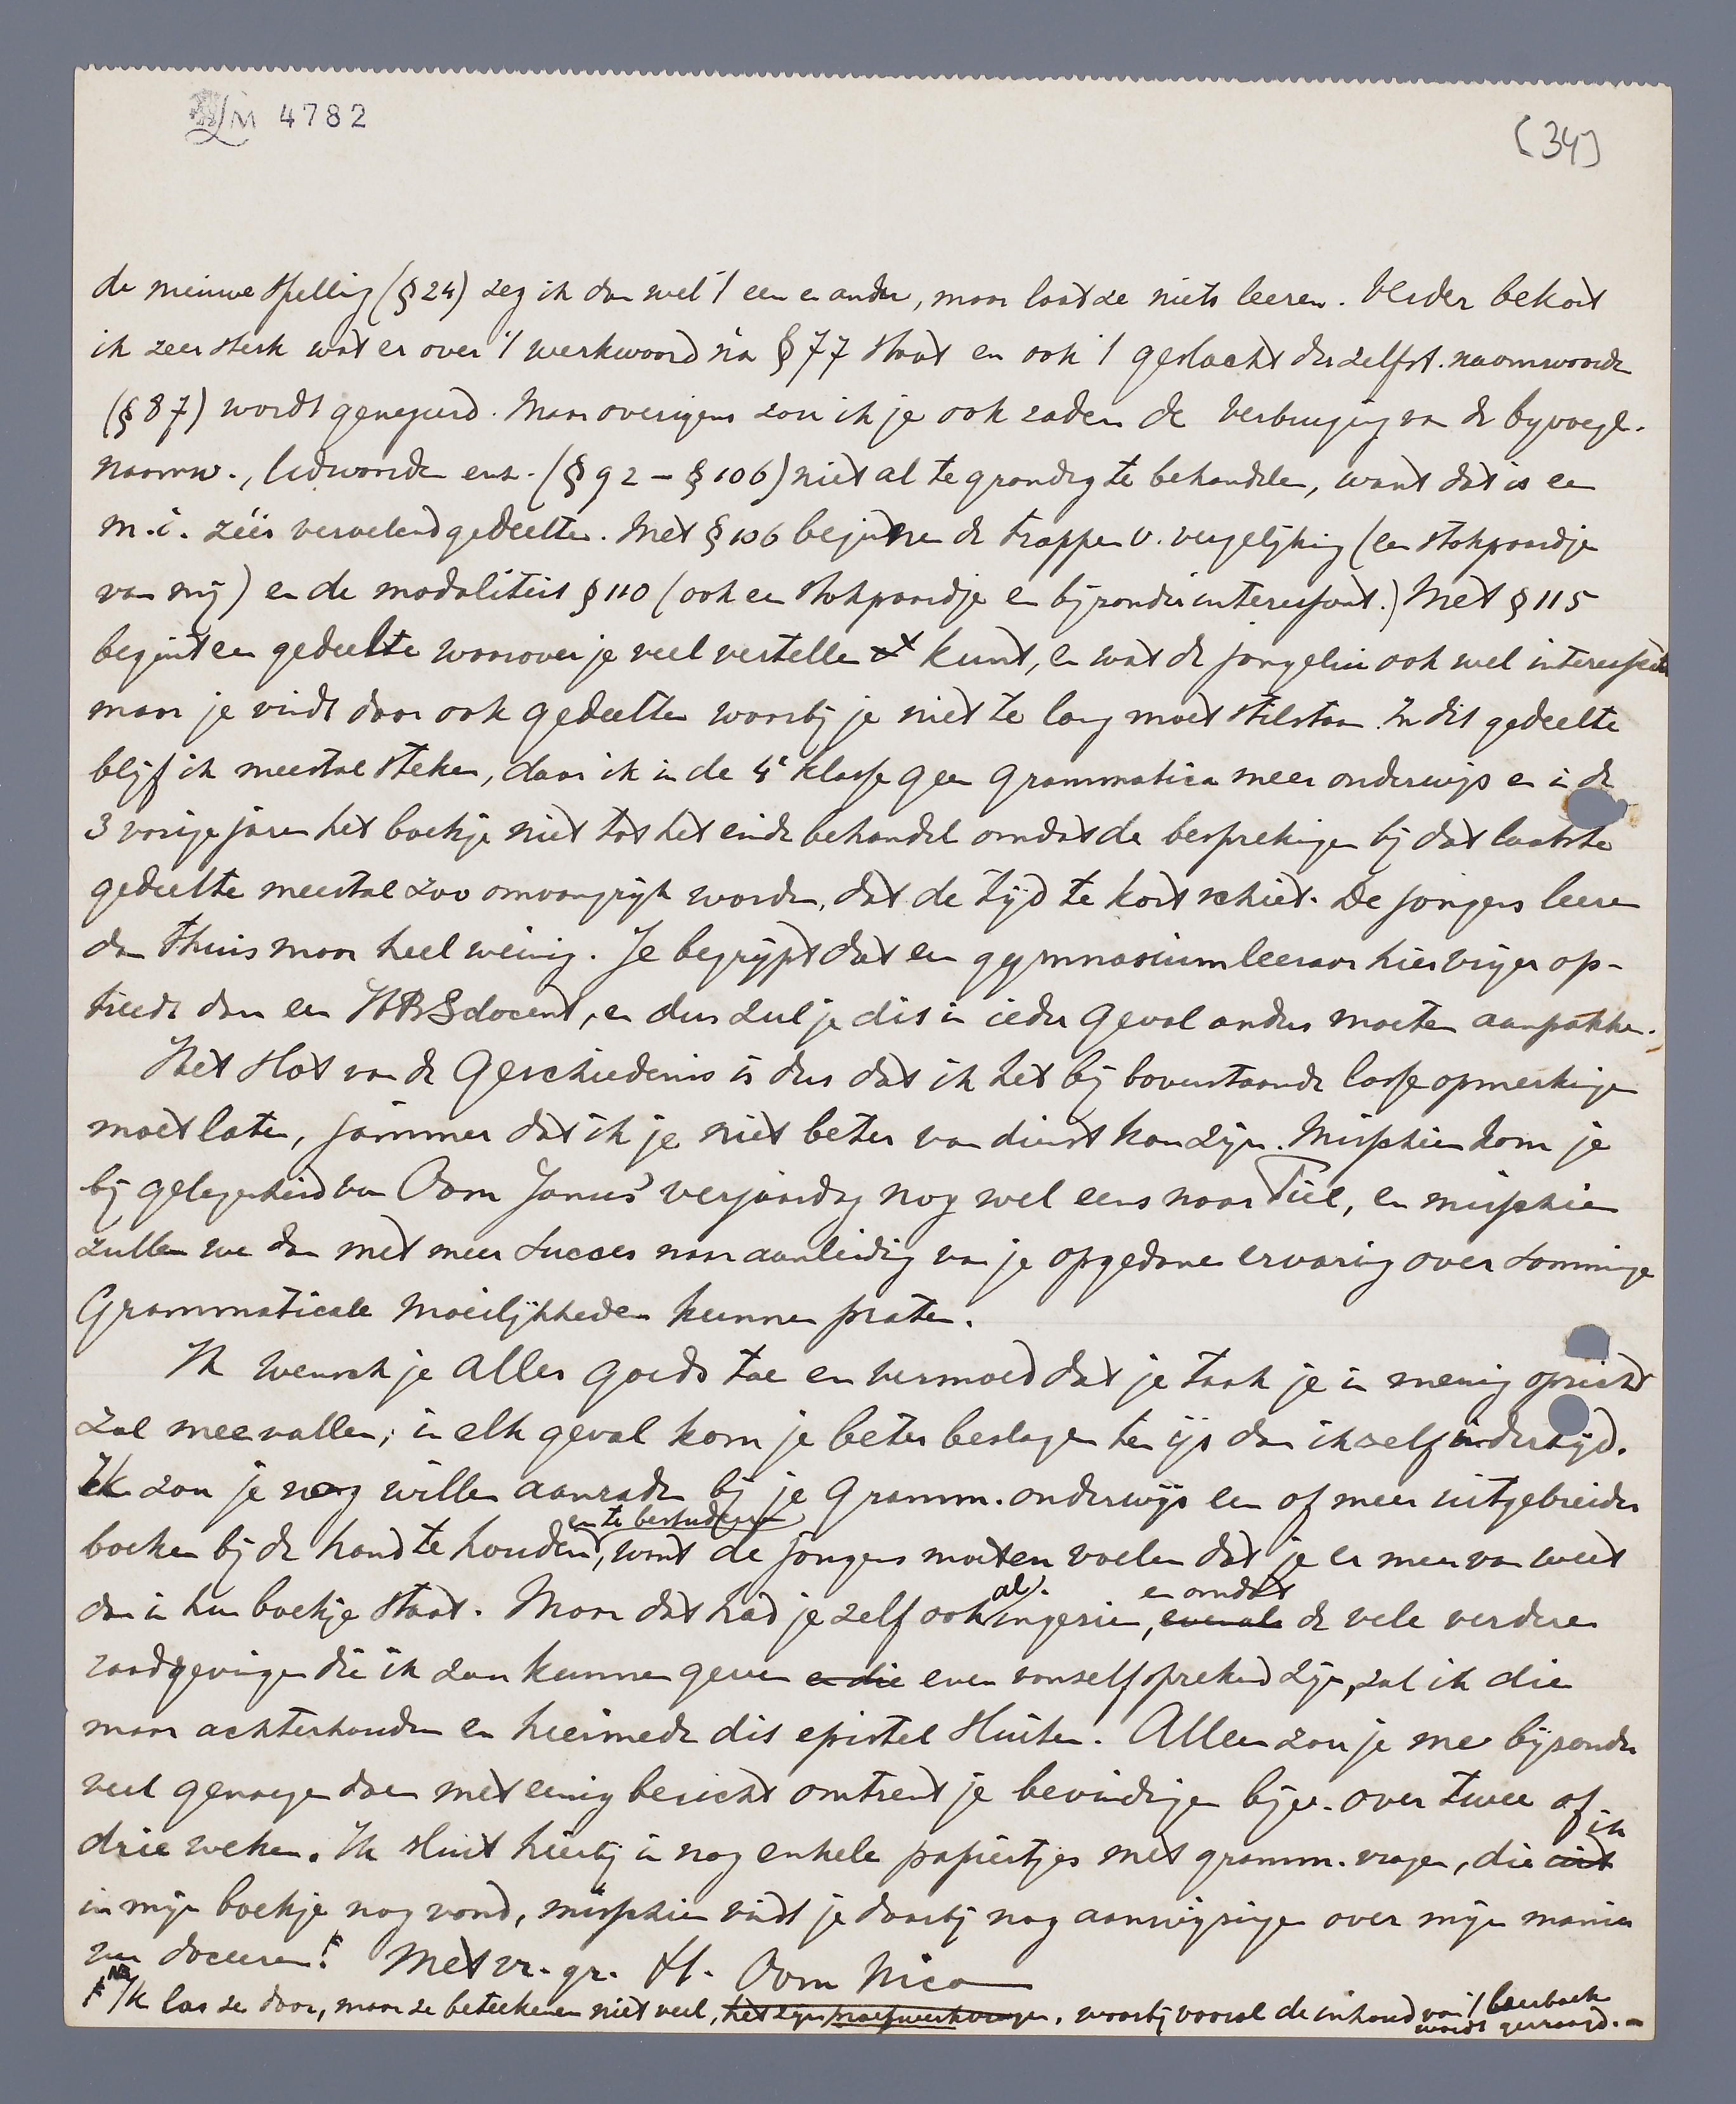 LM 4782
(34)
de nieuwe spelling (§ 24) zeg ik dan wel 't een en ander, maar laat ze niets leeren. Verder bekort
ik zeer sterk wat er over 't werkwoord na § 77 staat en ook 't geslacht der zelfst. naamwoorden
(§ 87) wordt genegeerd. Maar overigens zou ik je ook raden de verbuiging van de byvoegl.
naamw., lidwoorden enz. (§ 92 – § 106) niet al te grondig te behandelen, want dat is een
m.i. zéér vervelend gedeelte. Met § 106 beginnen de trappen v. vergelijking (een stokpaardje
van mij) en de modaliteit § 110 (ook een stokpaardje en bijzonder interessant.) Met § 115
begint een gedeelte waarover je veel vertellen kunt, en wat de jongelui ook wel interesseert
maar je vindt daar ook gedeelten waarbij je niet te lang moet stilstaan. In dit gedeelte
blijf ik meestal steken, daar ik in de 4e klasse geen grammatica meer onderwijs en in de
3 vorige jaren het boekje niet tot het einde behandel omdat de besprekingen bij dat laatste
gedeelte meestal zoo omvangrijk worden, dat de tijd te kort schiet. De jongens leeren
dan thuis maar heel weinig. Je begrijpt dat een gymnasiumleeraar hier vrijer op-
treedt dan een HBS docent, en dus zul je dit in ieder geval anders moeten aanpakken.
Het slot van de geschiedenis is dus dat ik het bij bovenstaande losse opmerkingen
moet laten, jammer dat ik je niet beter van dienst kan zijn. Misschien kom je
bij gelegenheid van Oom Janus' verjaardag nog wel eens naar Tiel, en misschien
zullen we dan met meer succes naar aanleiding van je opgedane ervaring over sommige
Grammaticale moeilijkheden kunnen praten.
Ik wensch je alles goeds toe en vermoed dat je taak je in menig opzicht
zal meevallen; in elk geval kom je beter beslagen ten ijs dan ikzelf indertijd.
Ik zou je nog willen aanraden bij je gramm. onderwijs een of meer uitgebreider
en te bestudeeren
boeken bij de hand te houden, want de jongens moeten voelen dat je er meer van weet
al. en omdat
dan in hun boekje staat. Maar dat had je zelf ook ingezien, evenals de vele verdere
raadgevingen die ik zou kunnen geven en die even vanzelfsprekend zijn, zal ik die
maar achterhouden en hiermede dit epistel sluiten. Alleen zou je me bijzonder
veel genoegen doen met eenig bericht omtrent je bevindingen bijv. over twee of
drie weken. Ik sluit hierbij in nog enkele papiertjes met gramm. vragen, die ik
in mijn boekje nog vond, misschien vindt je daarbij nog aanwijzingen over mijn manier
van doceeren! Met vr. gr. tt. Oom Nico
NB Ik las ze door, maar ze beteekenen niet veel, het zijn proefwerkvragen, waarbij vooral de inhoud van 't leerboek
wordt gevraagd.